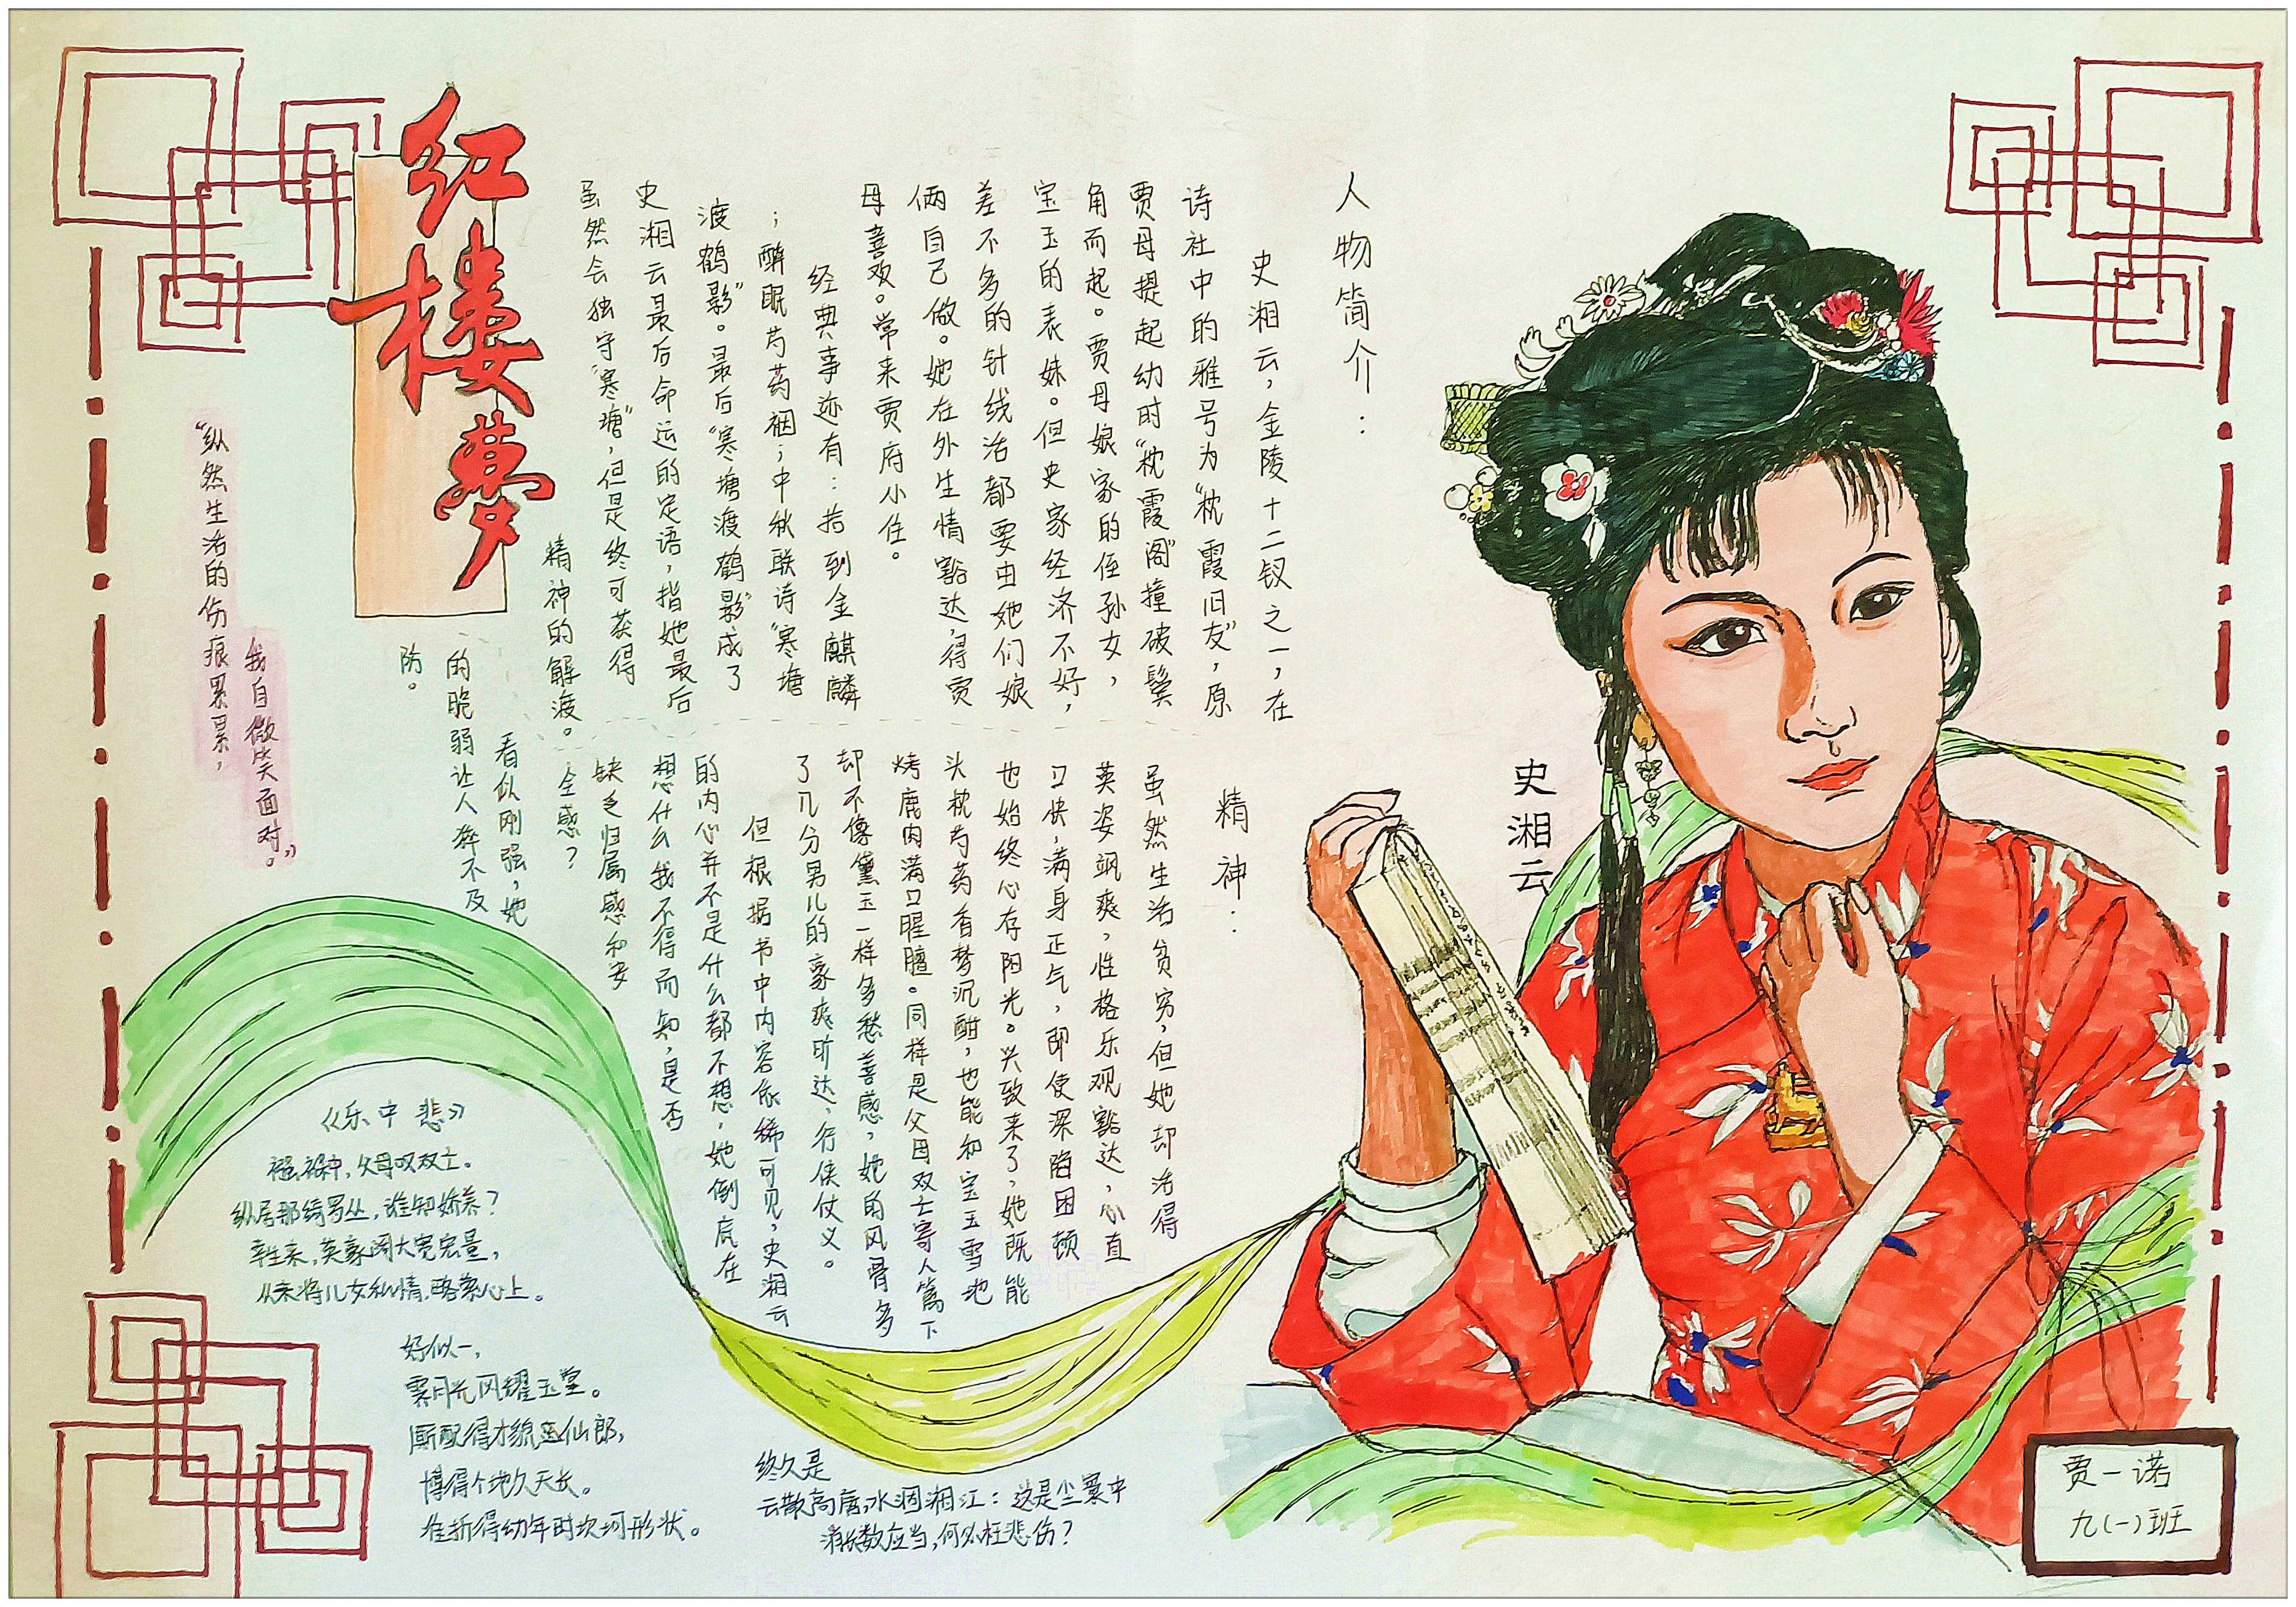 红楼梦
人物简介：
史湘云，金陵十二钗之一，在
诗社中的雅号为“枕霞旧友”，原
贾母提起幼时“枕霞阁”撞破鬓
角而起。贾母娘家的侄孙女，
宝玉的表妹。但史家经济不好，
差不多的针线活都要由她们娘
俩自己做。她在外生情豁达，得贾
母喜欢。常来贾府小住。
经典事迹有：拾到金麒麟
；醉眠芍药裀；中秋联诗“寒塘
渡鹤影”。最后“寒塘渡鹤影”成了
史湘云最后命运的定语，指她最后
虽然会独守“寒塘”，但是终可获得
精神的解渡。
史湘云
精神：
虽然生活贫穷，但她却活得
英姿飒爽，性格乐观豁达，心直
口快，满身正气，即使深陷困顿
也始终心存阳光。兴致来了，她既能
头枕芍药香梦沉酣，也能和宝玉雪地
烤鹿肉满口腥膻。同样是父母双亡寄人篱下
却不像黛玉一样多愁善感，她的风骨多
了几分男儿的豪爽旷达，行侠仗义。
但根据书中内容依稀可见，史湘云
的内心并不是什么都不想，她倒底在
想什么我不得而知，是否
缺乏归属感和安
全感？
看似刚强，她
的脆弱让人猝不及
防。
“纵然生活的伤痕累累，
我自微笑面对。”
《乐中悲》
襁褓中，父母叹双亡。
纵居那绮罗丛，谁知娇养？
幸生来，英豪阔大宽宏量，
从未将儿女私情，略萦心上。
好似一，
霁月光风耀玉堂。
厮配得才貌仙郎，
博得个地久天长。
准折得幼年时坎坷形状。
终久是
云散高唐，水涸湘江：这是尘寰中
消长数应当，何必枉悲伤？
贾一诺
九（一）班